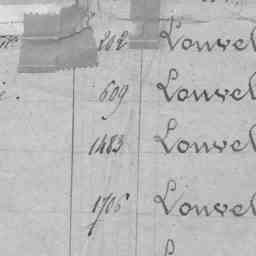 202 Louvel
609 Louvel
1483 Louvel
1706 Louvel